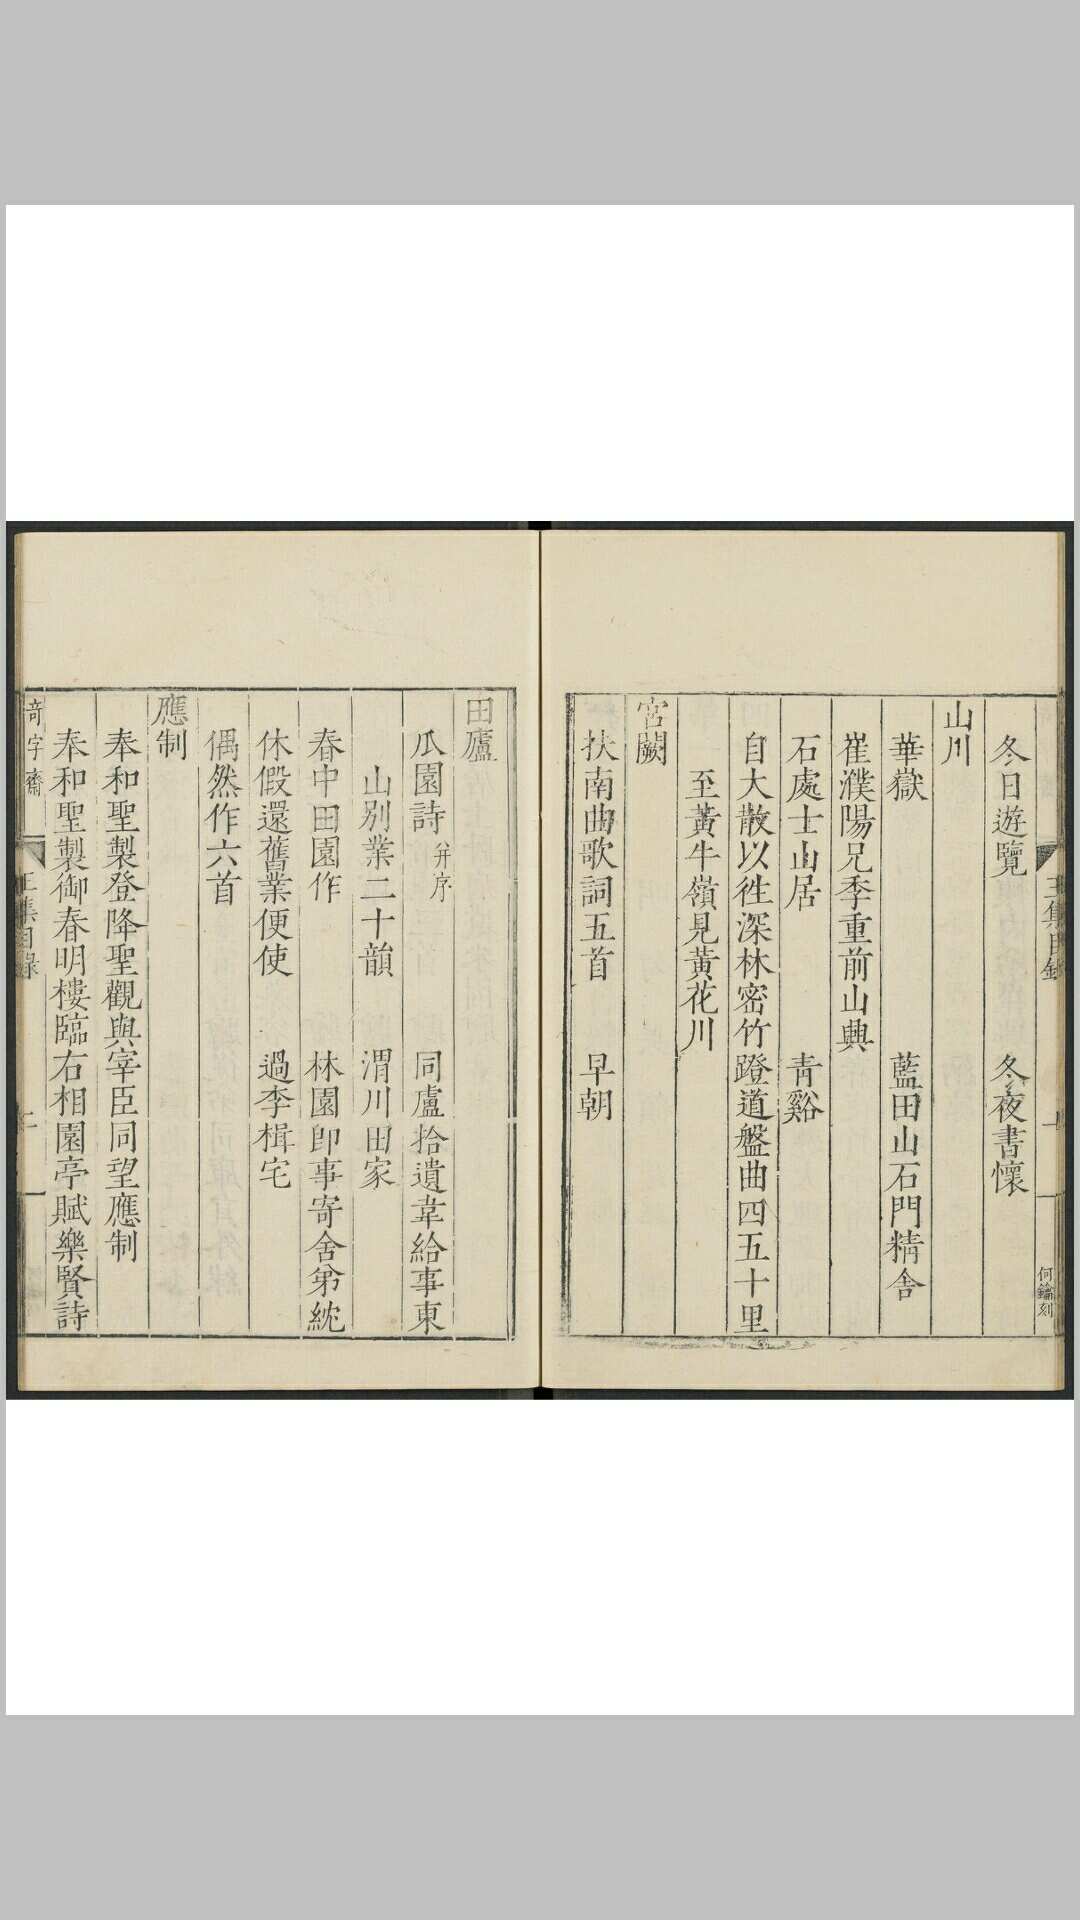 王集目錄
十
何鑰刻
冬日遊覽 冬夜書懷
山川
華嶽 藍田山石門精舍
崔濮陽兄季重前山興
石處士山居 青谿
自大散以徃深林密竹蹬道盤曲四五十里
至黃牛嶺見黃花川
宮闕
扶南曲歌詞五首 早朝
田廬
瓜園詩并序 同盧拾遺韋給事東
山別業二十韻 渭川田家
春中田園作 林園卽事寄舍弟紞
休假還舊業便使 過李楫宅
偶然作六首
應制
奉和聖製登降聖觀與宰臣同望應制
奉和聖製御春明樓臨右相園亭賦樂賢詩
奇字齋
王集目錄